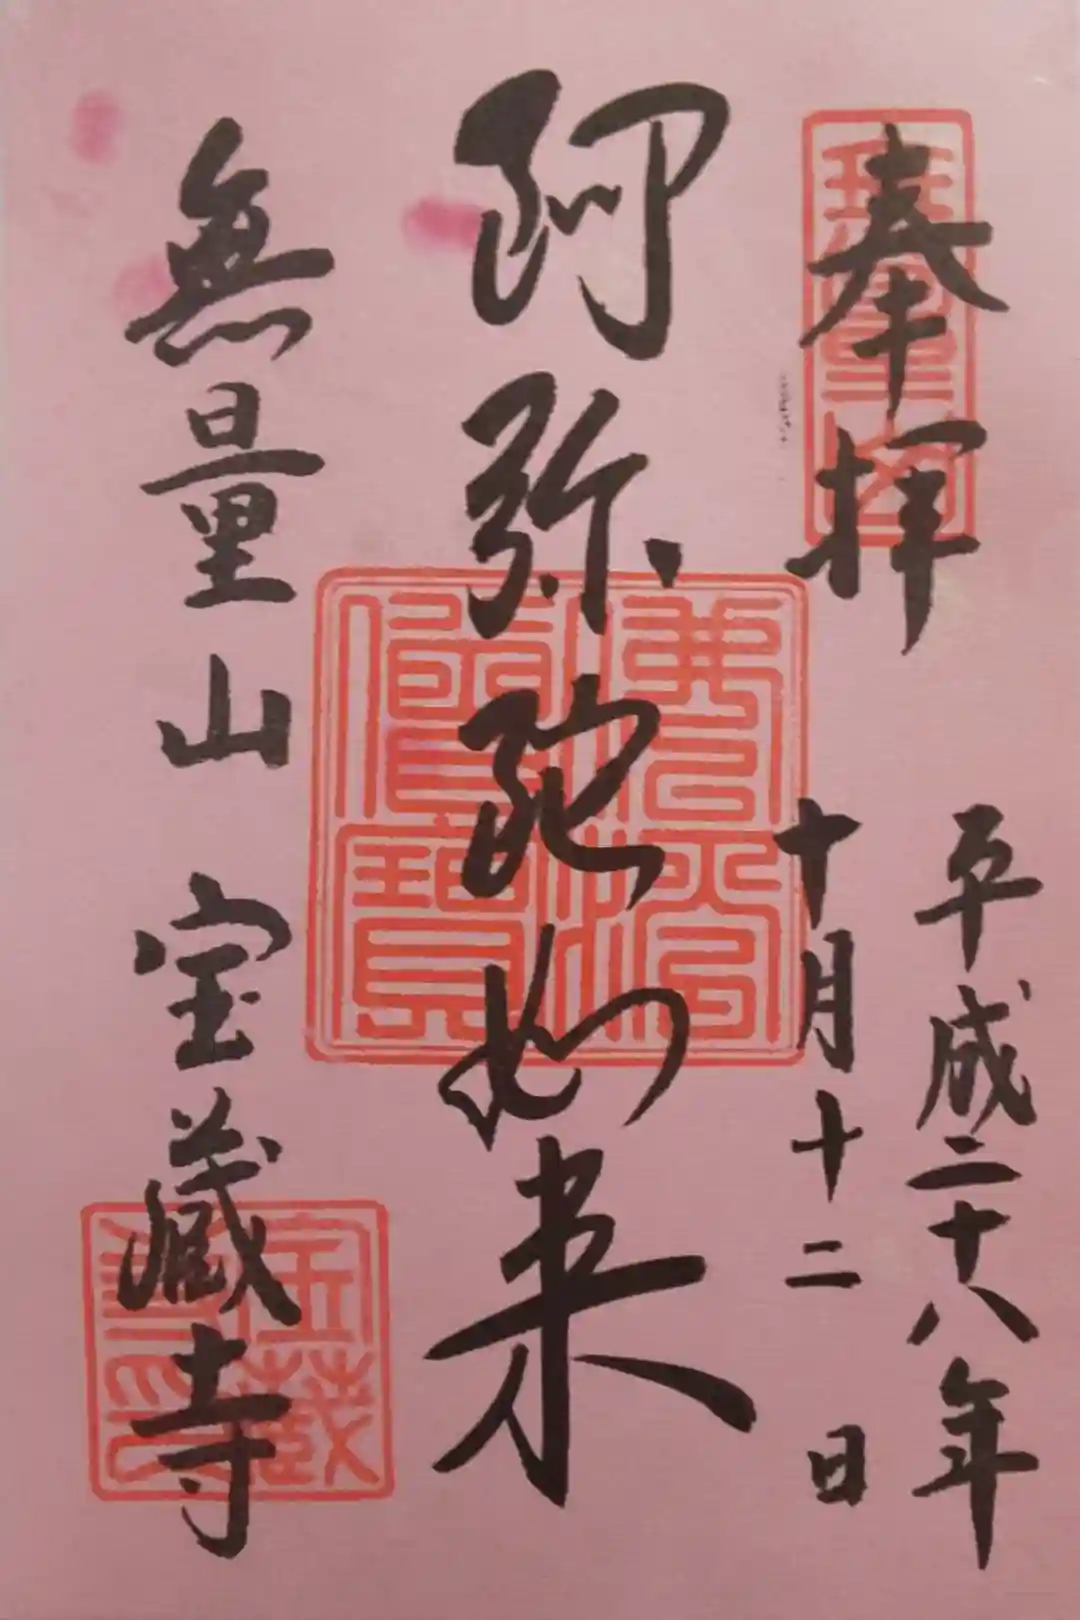 奉拝
平成二十八年
十月十二日
阿弥陀如来
無量山 宝蔵寺
佛法僧寶
宝蔵寺印